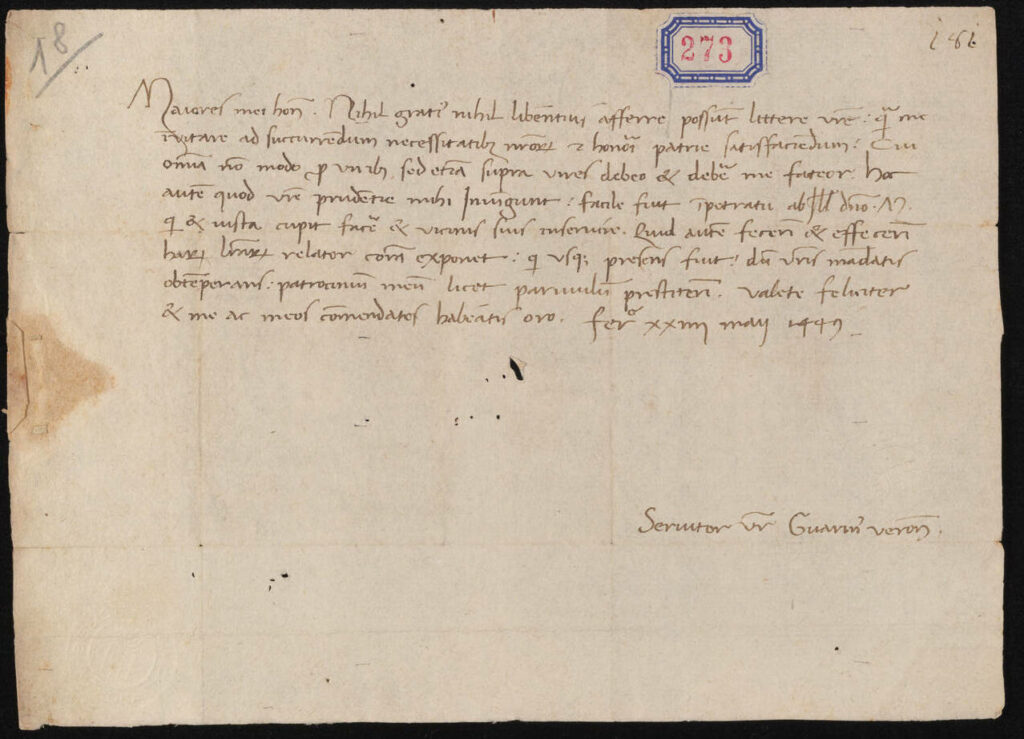 18
273
181
Maiores mei hon. Nihil grati9 nihil libentius afferre possunt littere vr̄e : q̄ me
ad succurrendum necessitatibȝ nr̄orꝝ & honori patrie satisfaciendum : Cui
omīa nō modo ꝓ virib9 sed etiā supra vires debeo & debr̄e me fateor. Hoc
autē quod vr̄e prudētie mihi Iniungunt : facile fuit īpetratu ab Ill. dn̄o. N.
qi & iusta cupit facr̄e & vicinis suis inservire. Quid autē fecerī & effecerī
harꝝ lr̄arꝝ relator corā exponet : qi usqȝ presens fuit : dū vr̄is mādatis
obtēperans : patrociniū meū licet parvulū prestiterī. Valete feliciter
& me ac meos cōmendatos habeatis oro. fer̄ xxiiii maij 1449
Servitor vr̄ Guarin9 veron̄.